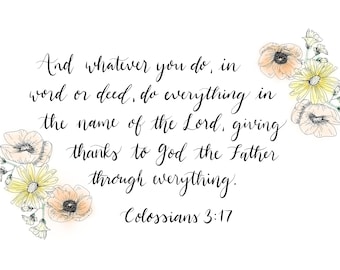 And whatever you do, in
word or deed, do everything in
the name of the Lord, giving
thanks to God the Father
through everything.
Colossians 3:17